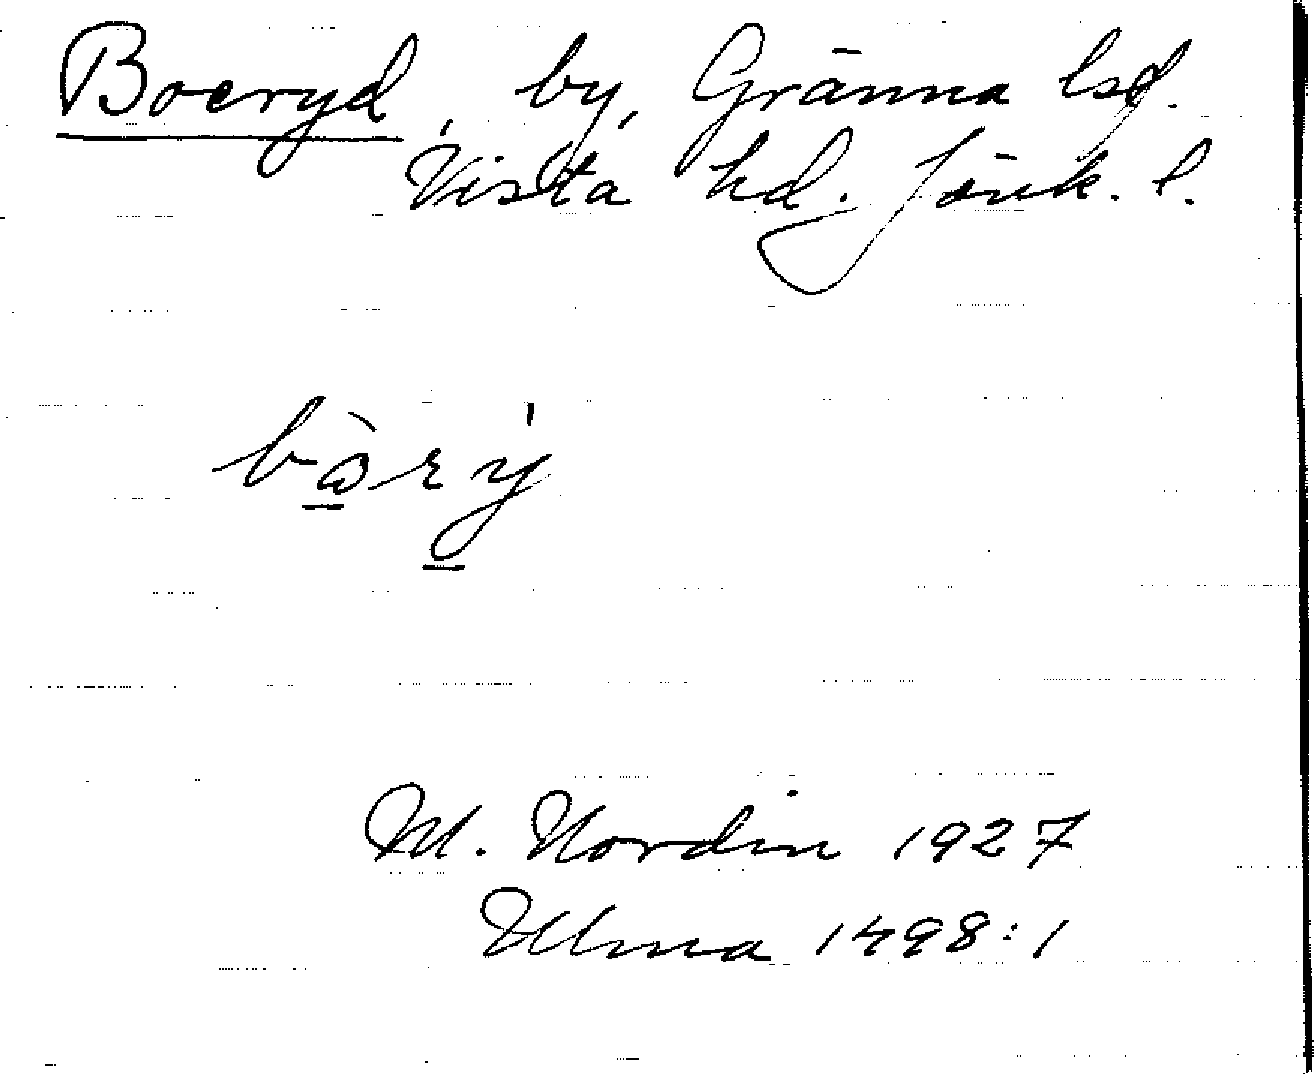 Boeryd, by, Gränna lsd.
Vista hd. Jönk. l.
bòrý
M. Nordin 1927
Ulma 1498:1